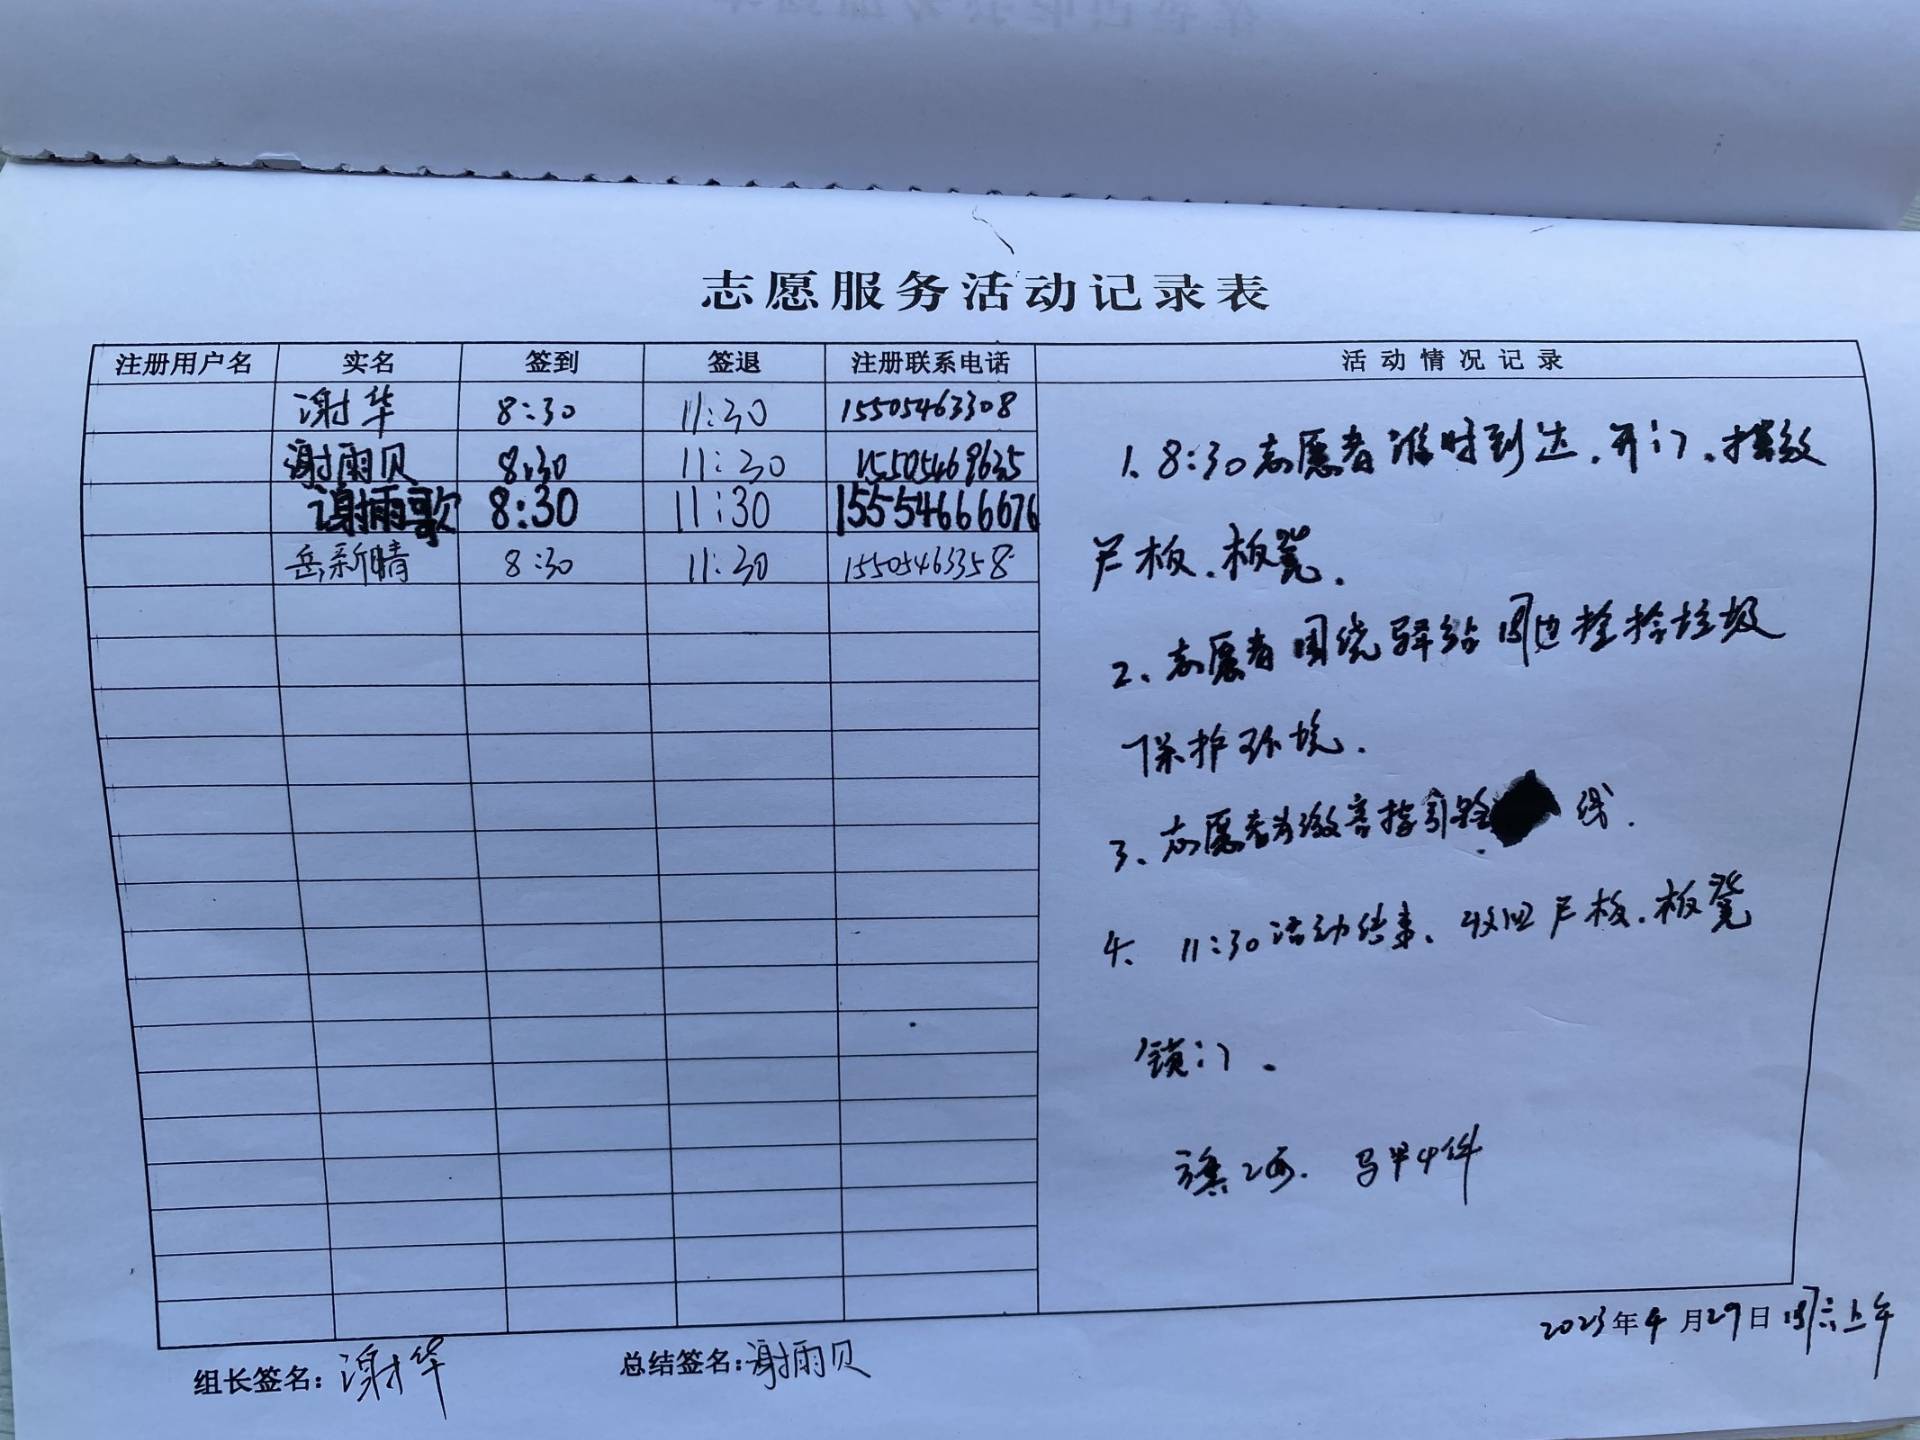 志愿服务活动记录表
注册用户名 实名 签到 签退 注册联系电话 活动情况记录
谢华 8:30 11:30 15505463308
谢雨贝 8:30 11:30 15505469635
谢雨歌 8:30 11:30 15554666676
岳新晴 8:30 11:30 15505463358
1、8:30志愿者准时到达、开门、摆放
展板、板凳.
2、志愿者围绕驿站周边捡拾垃圾
保护环境.
3、志愿者为游客指引路 线.
4、11:30活动结束、收回展板、板凳
锁门.
旗2面. 马甲4件
2023年4月29日 周六上午
组长签名：谢华 总结签名：谢雨贝